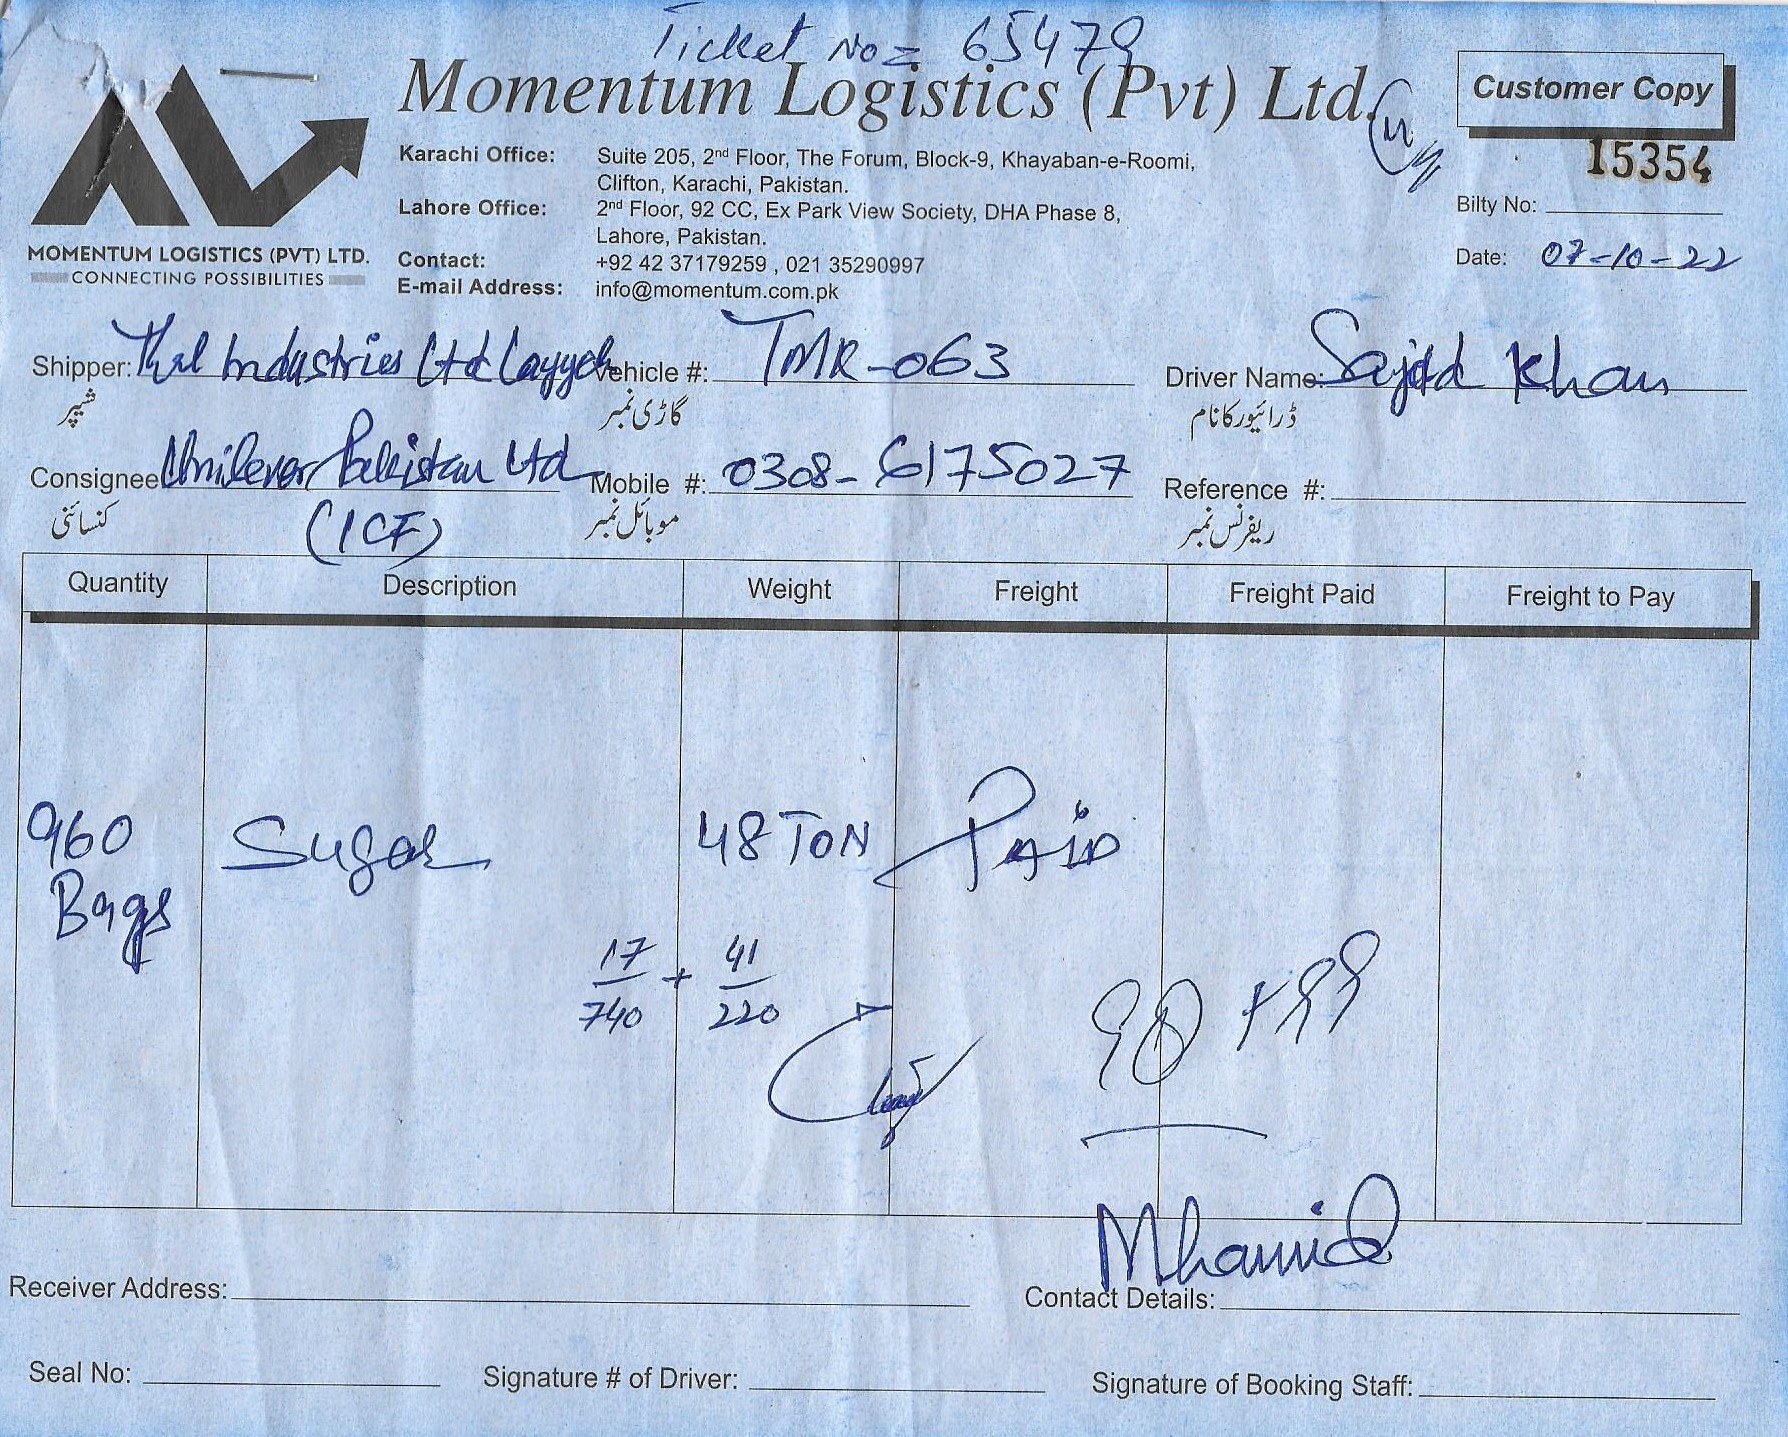 Ticket No = 65479
Momentum Logistics (Pvt) Ltd.
Customer Copy
15354
MOMENTUM LOGISTICS (PVT) LTD.
CONNECTING POSSIBILITIES
Karachi Office: Suite 205, 2nd Floor, The Forum, Block-9, Khayaban-e-Roomi,
Clifton, Karachi, Pakistan.
Lahore Office: 2nd Floor, 92 CC, Ex Park View Society, DHA Phase 8,
Lahore, Pakistan.
Contact: +92 42 37179259 , 021 35290997
E-mail Address: info@momentum.com.pk
Bilty No:
Date: 07-10-22
Shipper: Thal Industries Ltd Layyah Vehicle #: TMR-063 Driver Name: Sajid Khan
شپر گاڑی نمبر ڈرائیور کا نام
Consignee Unilever Pakistan Ltd Mobile #: 0308-6175027 Reference #:
کنسائنی (ICF) موبائل نمبر ریفرنس نمبر
Quantity Description Weight Freight Freight Paid Freight to Pay
960 Sugar 48 TON PAID
Bags
17 + 41
740 220
Mhamid
Receiver Address: Contact Details:
Seal No: Signature # of Driver: Signature of Booking Staff: